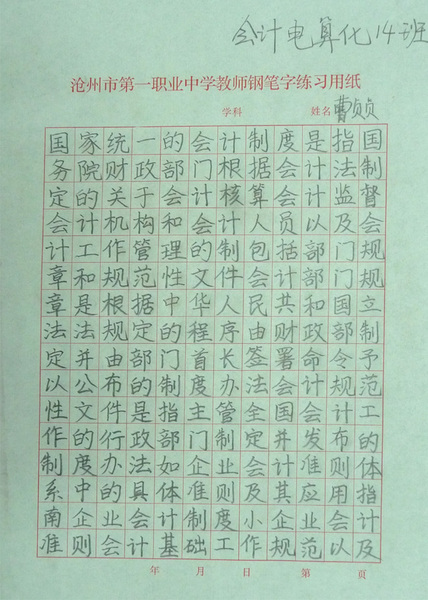 会计电算化14班
沧州市第一职业中学教师钢笔字练习用纸
学科 姓名 曹贞贞
国家统一的会计制度是指国
务院财政部门根据会计法制
定的关于会计核算会计监督
会计机构和会计人员以及会
计工作管理的制包括部门规
章和规范性文件会计部门规
章是根据中华人民共和国立
法法规定的程序由财政部制
定并由部门首长签署命令予
以公布的制度办法会计规范
性文件是指主管全国会计工
作的行政部门制定并发布的
制度办法如企业会计准则体
系中的具体准则及其应用指
南企业会计制度小企业会计
准则会计基础工作规范以及
年 月 日 第 页